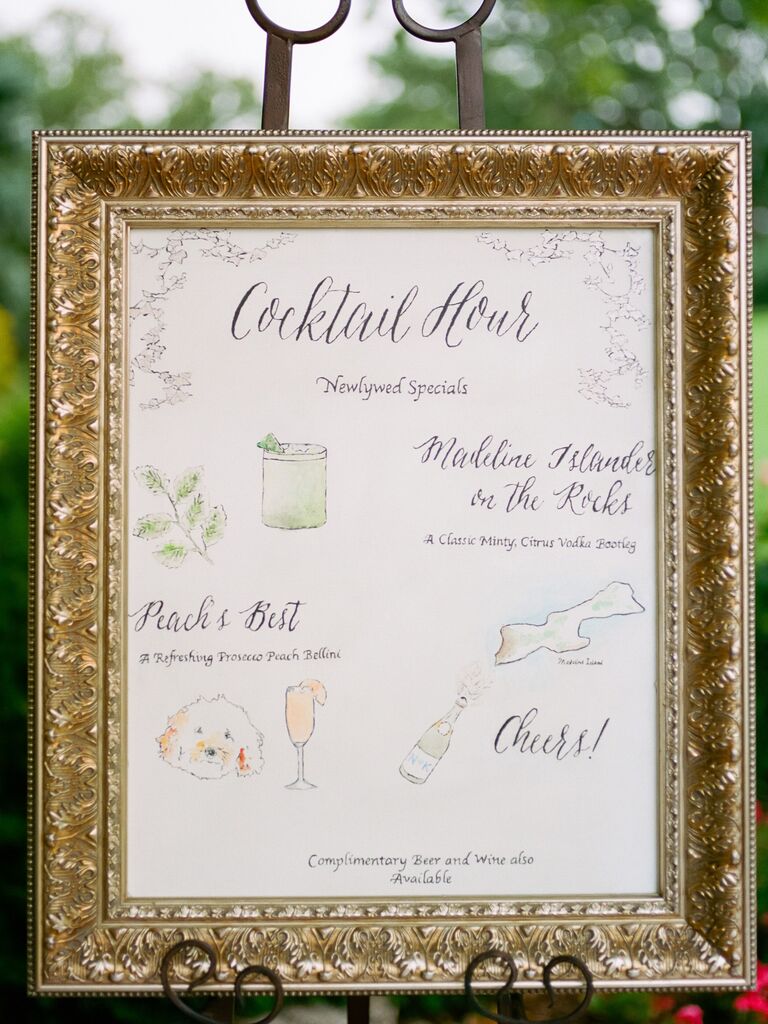 Cocktail Hour
Newlywed Specials
Madeline Islander
on the Rocks
A Classic Minty, Citrus Vodka Bootleg
Peach's Best
A Refreshing Prosecco Peach Bellini
Madeline Island
N&K
Cheers!
Complimentary Beer and Wine also
Available